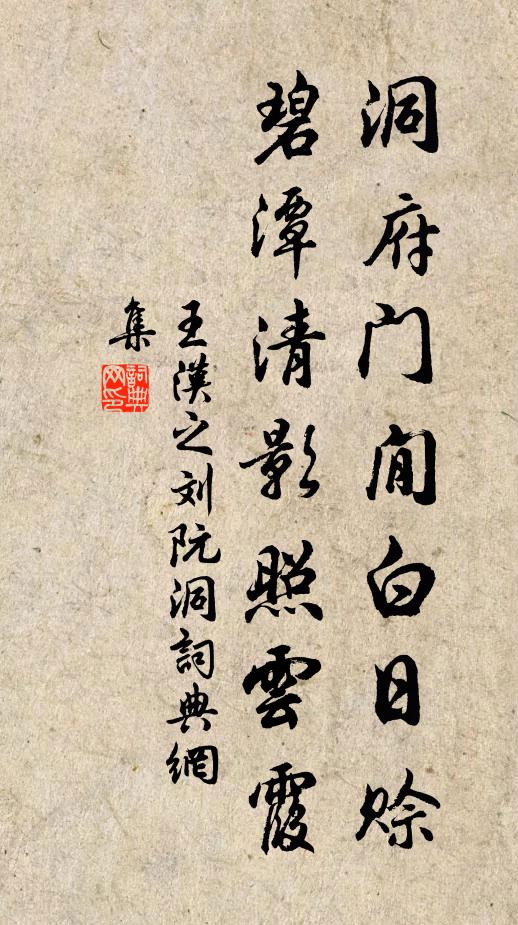 洞府门闲白日赊
碧潭清影照雲霞
王漢之刘阮洞詞典網
集
詞典網印